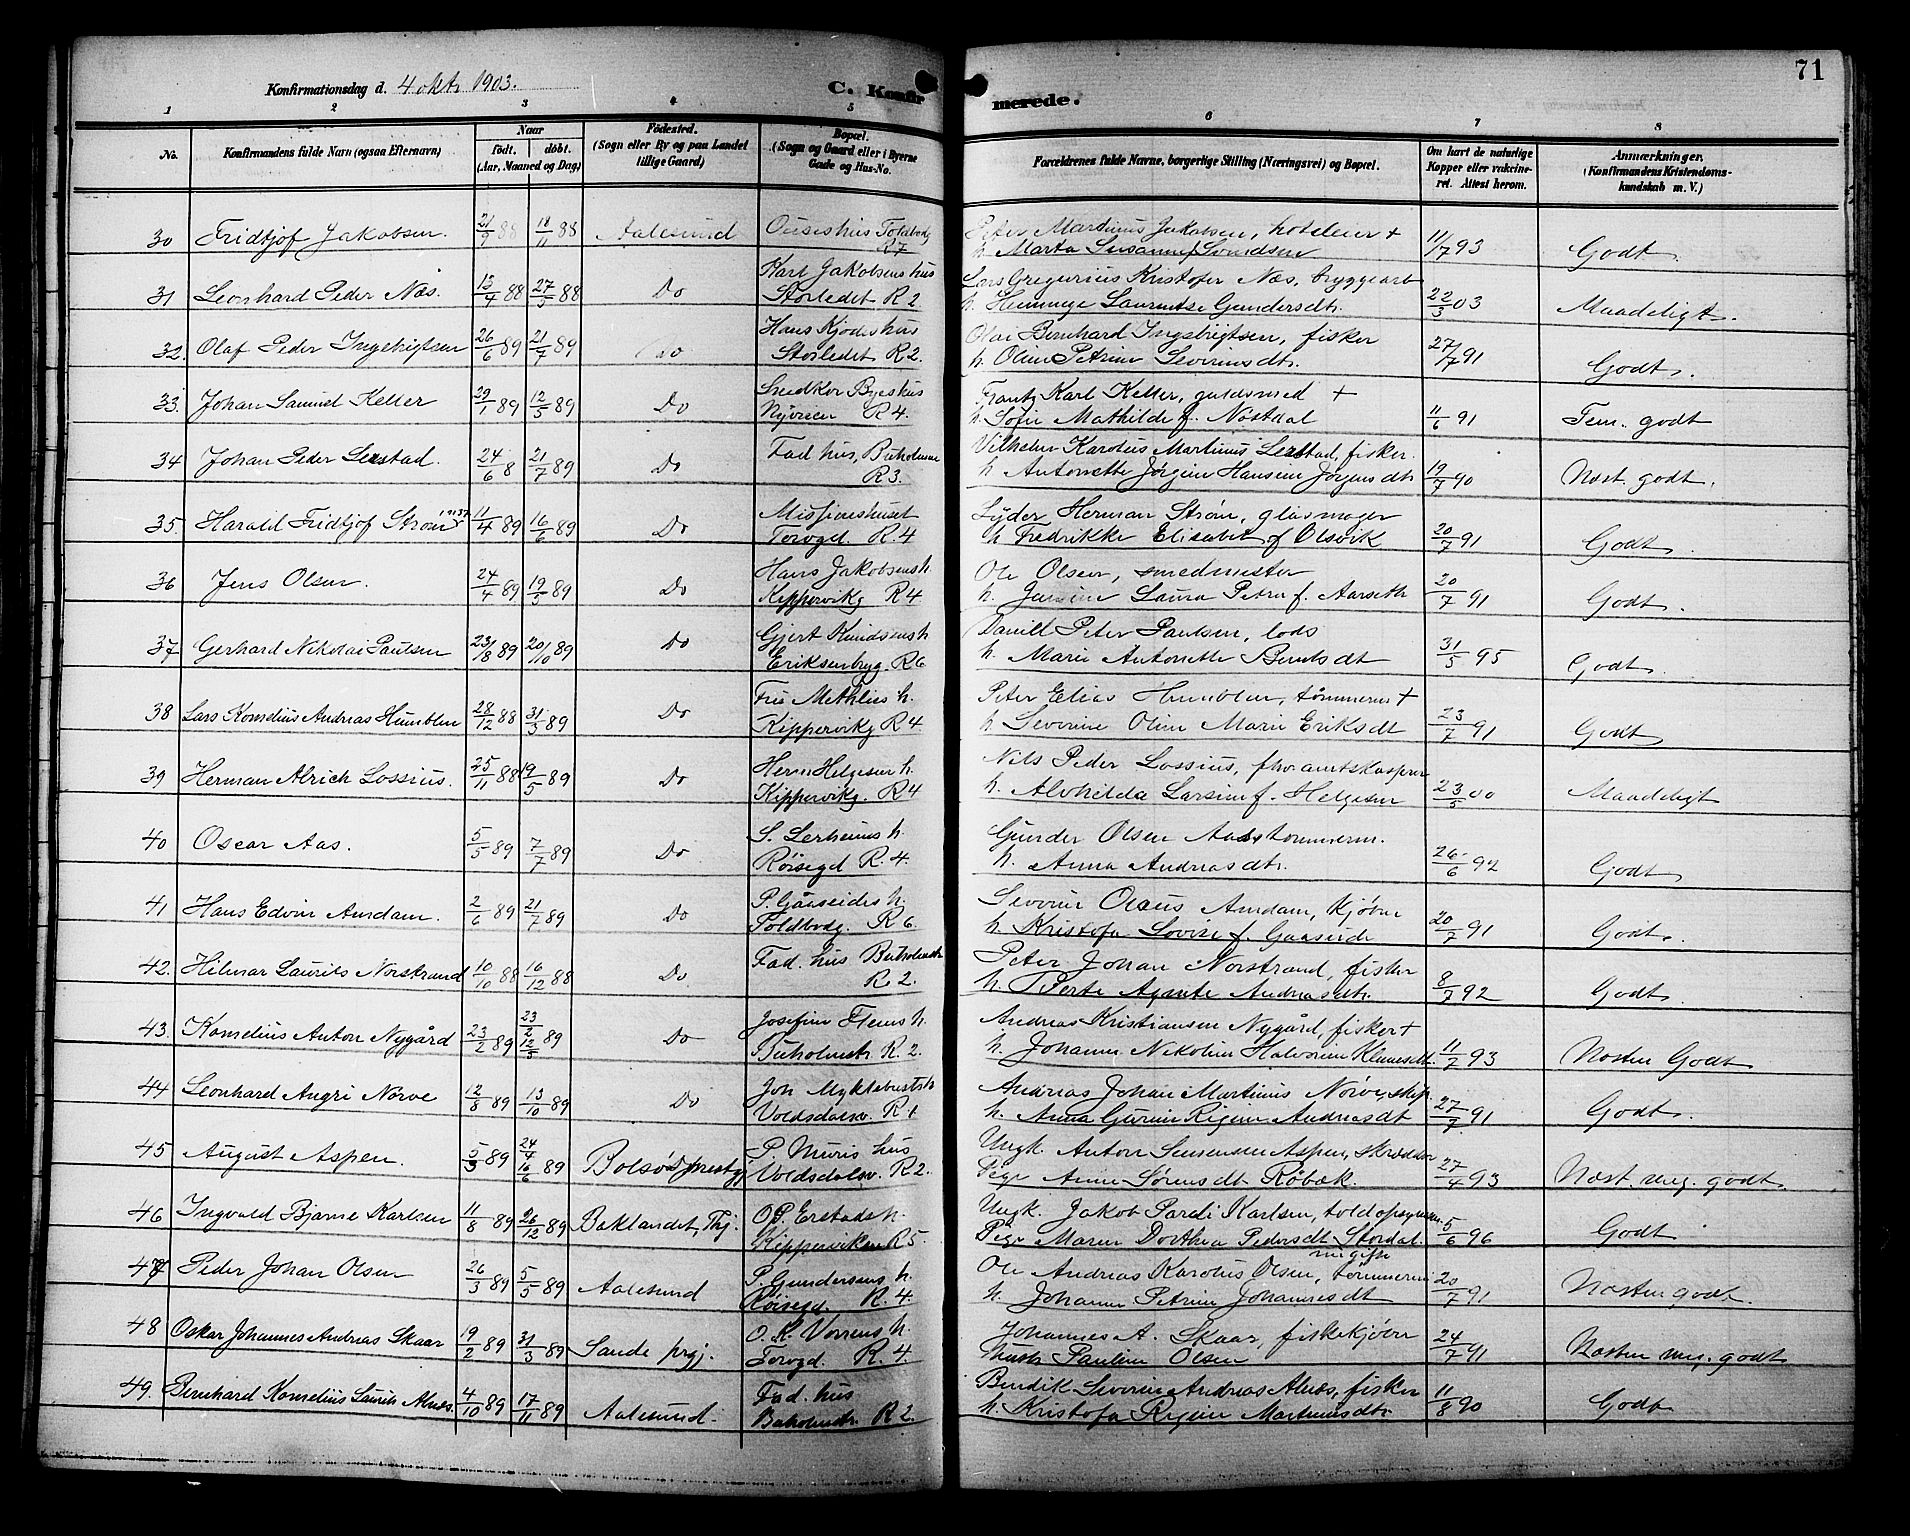 71
Konfirmationsdag d. 4 oktr 1903.
C. Konfirmerede.
1 2 3 4 5 6 7 8
No. Konfirmandens fulde Navn (ogsaa Efternavn) Naar født. døbt. (Aar, Maaned og Dag) Fødested. (Sogn eller By og paa Landet tillige Gaard) Bopæl. (Sogn og Gaard eller i Byerne Gade og Hus-No. Forældrenes fulde Navne, borgerlige Stilling (Næringsvei) og Bopæl. Om havt de naturlige Kopper eller vakcineret. Attest herom. Anmærkninger. (Konfirmandens Kristendomskundskab m. V.)
30 Fridtjof Jakobsen. 21/9 88 18/11 88 Aalesund Toldbodg R7 Peter Martinus Jakobsen, hoteleier +
h. Marta Susanne f. Svendsen 11/7 93 Godt.
31 Leonhard Peder Næs. 13/4 88 27/5 88 Do Karl Jakobsens hus
Storledet R 2. Lars Gregorius Kristofer Næs, bryggearb
h. Laurentse Gundersdtr. 22/3 03 Maadeligt.
32. Olaf Peder Ingebrigtsen 26/6 89 21/7 89 Do Hans Kjødes hus
Storledet R2. Olai Bernhard Ingebrigtsen, fisker
h. Oline Petrine Severinsdtr. 27/7 91 Godt.
33. Johan Samuel Keller 29/1 89 12/5 89 Do Snedker Byes hus
Nyveien R4. Frantz Karl Keller, guldsmed +
h. Sofie Mathilde f. Nøstdal 11/6 91 Tem. godt
34 Johan Peder Lerstad. 24/6 8 21/7 89 Do Fad hus, Buholmene
R3. Vilhelm Karolus Martinus Lerstad, fisker.
h. Antonette Jørgine Hansine Jørgensdtr 19/7 90 Næst. godt.
35. Harald Fridtjof Strøm 11/4 89 16/6 89 Do Misjonshuset
Torvgd. R4 Lyder Herman Strøm, glasmager
h. Fredrikke Elisabet f Olsvik 20/7 91 Godt.
36 Jens Olsen. 24/4 89 19/5 89 Do Hans Jakobsens h.
Kippervikg R4. Ole Olsen, smedmester
h. Jensine Laura Petra f. Aarseth 20/7 91 Godt.
37 Gerhard Nikolai Paulsen 23/8 89 20/10 89 Do Gjert Knudsens h
Eriksenbryg. R6 Daniel Peter Paulsen, lods
h. Marie Antonette Berntsdt 31/5 95 Godt.
38 Lars Kornelius Andreas Humblen 28/12 88 31/3 89 Do Fru Methlies h.
Kippervikg R4. Peter Elias Humblen, tømmerm +
h. Severine Oline Marie Eriksdt 23/7 91 Godt
39 Herman Alrich Lossius. 25/11 88 19/5 89 Do Herm Helgesen h.
Kippervikg. R4 Nils Peder Lossius, fhv. amtskasserer
h. Alvhilda Larsine f. Helgesen 23/5 00 Maadeligt
40 Oscar Aas. 5/5 89 7/7 89 Do S. Lerheims h.
Røisegd R. 4. Gunder Olsen Aas, tømmerm.
h. Anna Andreasdtr. 26/6 92 Godt
41 Hans Edvin Amdam. 2/6 89 21/7 89 Do P. Gaaseides h.
Toldbodg. R6. Severin Olaus Amdam, Kjøbm
h. Kristofa Lovise f. Gaaseide 20/7 91 Godt.
42. Hilmar Laurits Norstrand 10/10 88 16/12 88 Do Fad. hus Buholmstr
R 2. Peter Johan Norstrand, fisker
h. Berte Agnete Andreasdtr. 8/7 92 Godt.
43. Kornelius Anton Nygård 23/2 89 23/2 12/5 89 Do Josefine Flems h.
Buholmstr. R. 2. Andreas Kristiansen Nygård, fisker +
h. Johanne Nikoline Halvorine 11/7 93 Næsten Godt
44 Leonhard Angri Nørve 12/8 89 13/10 89 Do Joh Myklebusts h
Voldsdalsv. R 1 Andreas Johan Martinus Nørve, skip
h. Anna Gurine Regine Andreasdt 27/7 91 Godt.
45 August Aspen. 5/3 89 24/4 16/6 89 Bolsø prestgj P. Muris hus
Voldsdalsv. R2. Ungk. Anton Aspen, skrædder
Pige Anne Sørensdt Røbæk. 27/4 93 Næst. meg. godt.
46 Ingvald Bjarne Karlsen 11/8 89 26/12 89 Baklandet, Thj. O. P. Erstads h.
Kipperviken R5. Ungk. Jakob Karlsen, toldopsynsm.
Pige Maren Dorthea Pedersdt Stordal 5/6 96 Godt
47 Peder Johan Olsen 26/3 89 5/5 89 Aalesund P. Gundersens h.
Røisegd. R. 4. ungifte
Ole Andreas Karolus Olsen, tømmerm
h. Johanne Petrine Johannesdt 20/7 91 Næsten godt.
48 Oskar Johannes Andreas Skaar 19/2 89 31/3 89 Sande prgj. O. K. Vorrens h.
Torvgd. R. 4. Johannes A. Skaar, fiskekjøber
hustr Pauline Olsen 24/7 91 Næsten meg. godt
49. Bernhard Kornelius Laurits Alnæs. 4/10 89 17/11 89 Aalesund. Fad. hus
Buholmstr. R2. Bendik Severin Andreas Alnæs, fisker
h. Kristofa Regine Martinusdtr. 11/8 90 Godt